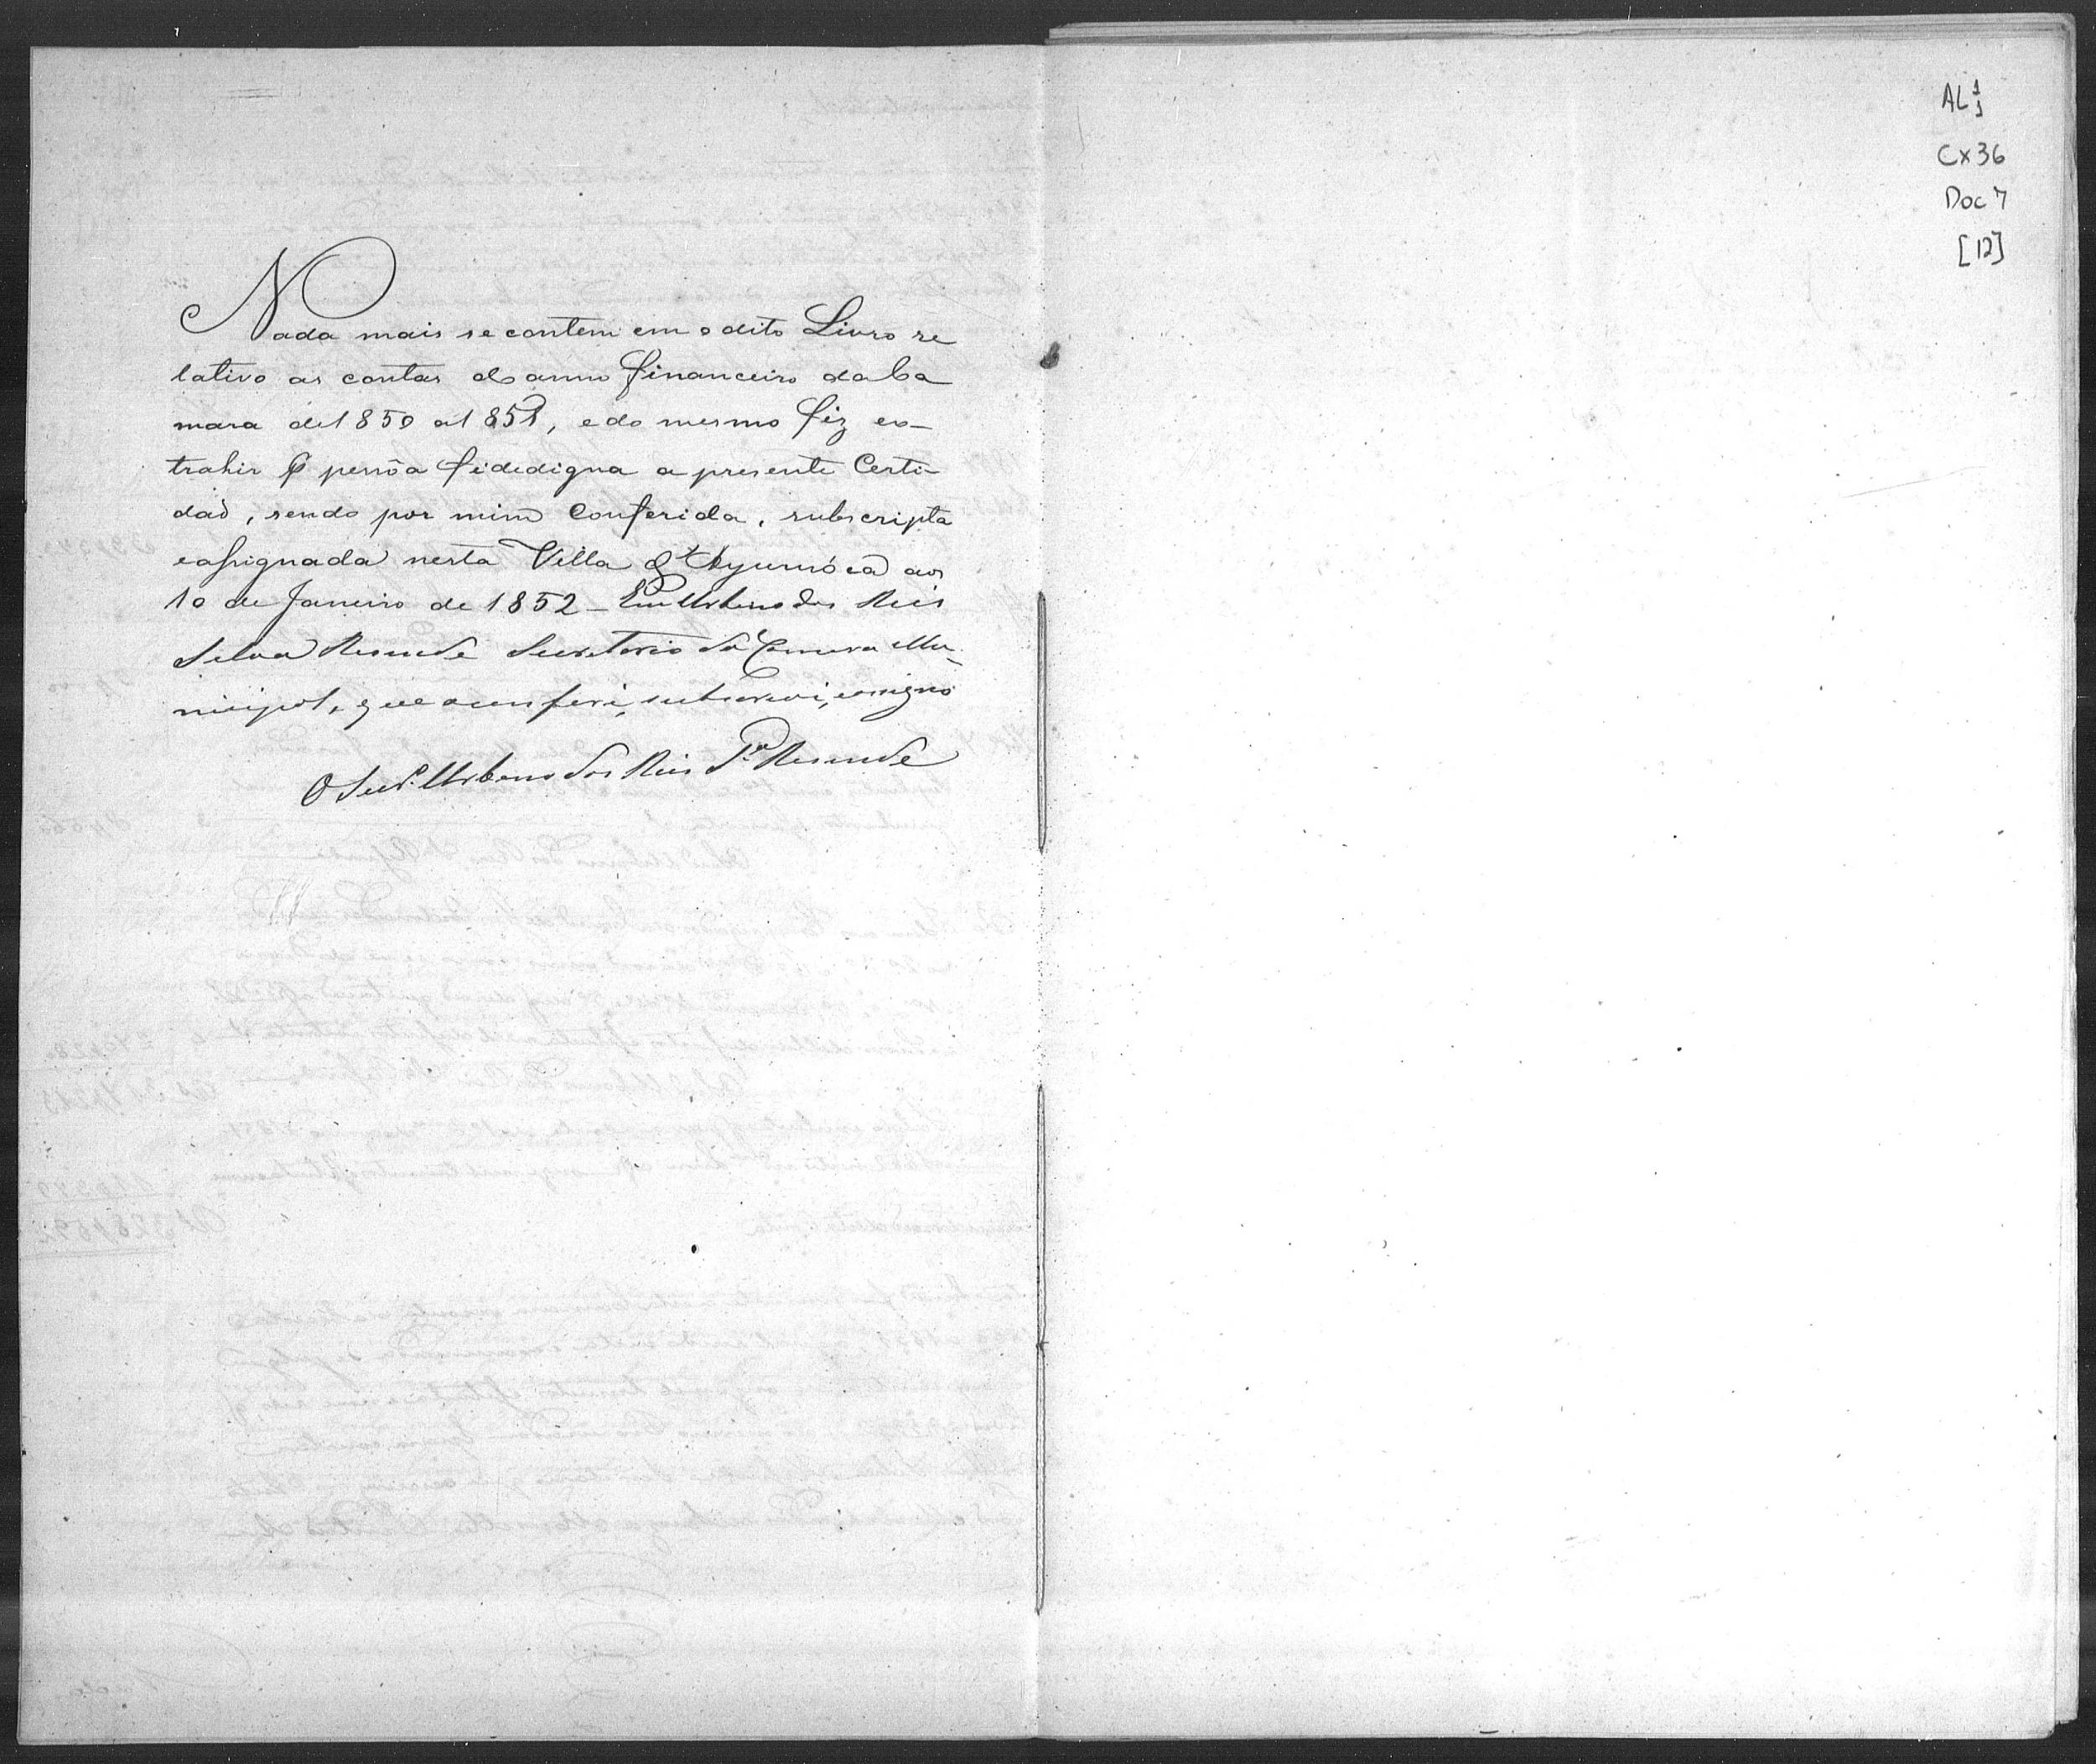 Nada mais se contem em o dito Livro re
lativo as contas do anno financeiro da Ca
mara de 1850 a 1851, e do mesmo fiz ex-
trahir p pessôa fidedigna a presente Certi-
dad, sendo por mim Conferida, subscripta
e assignada nesta Villa d'Ayuruóca aos
10 de Janeiro de 1852 - Eu Urbano dos Reis
Silva Resende Secretario da Camara Mu-
nicipal, que a conferi, subscrevi, e assigno
O Secr.º Urbano dos Reis S.ª Resende
AL 1 1
Cx 36
Doc 7
[12]